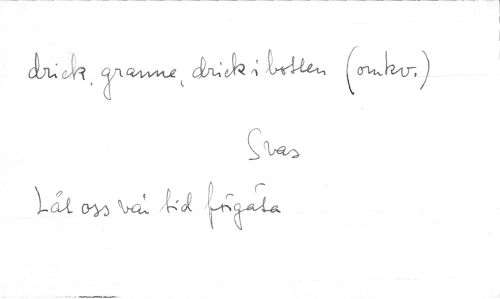 drick, granne, drick i botten (omkv.)
Svas
Låt oss vår tid förgäta